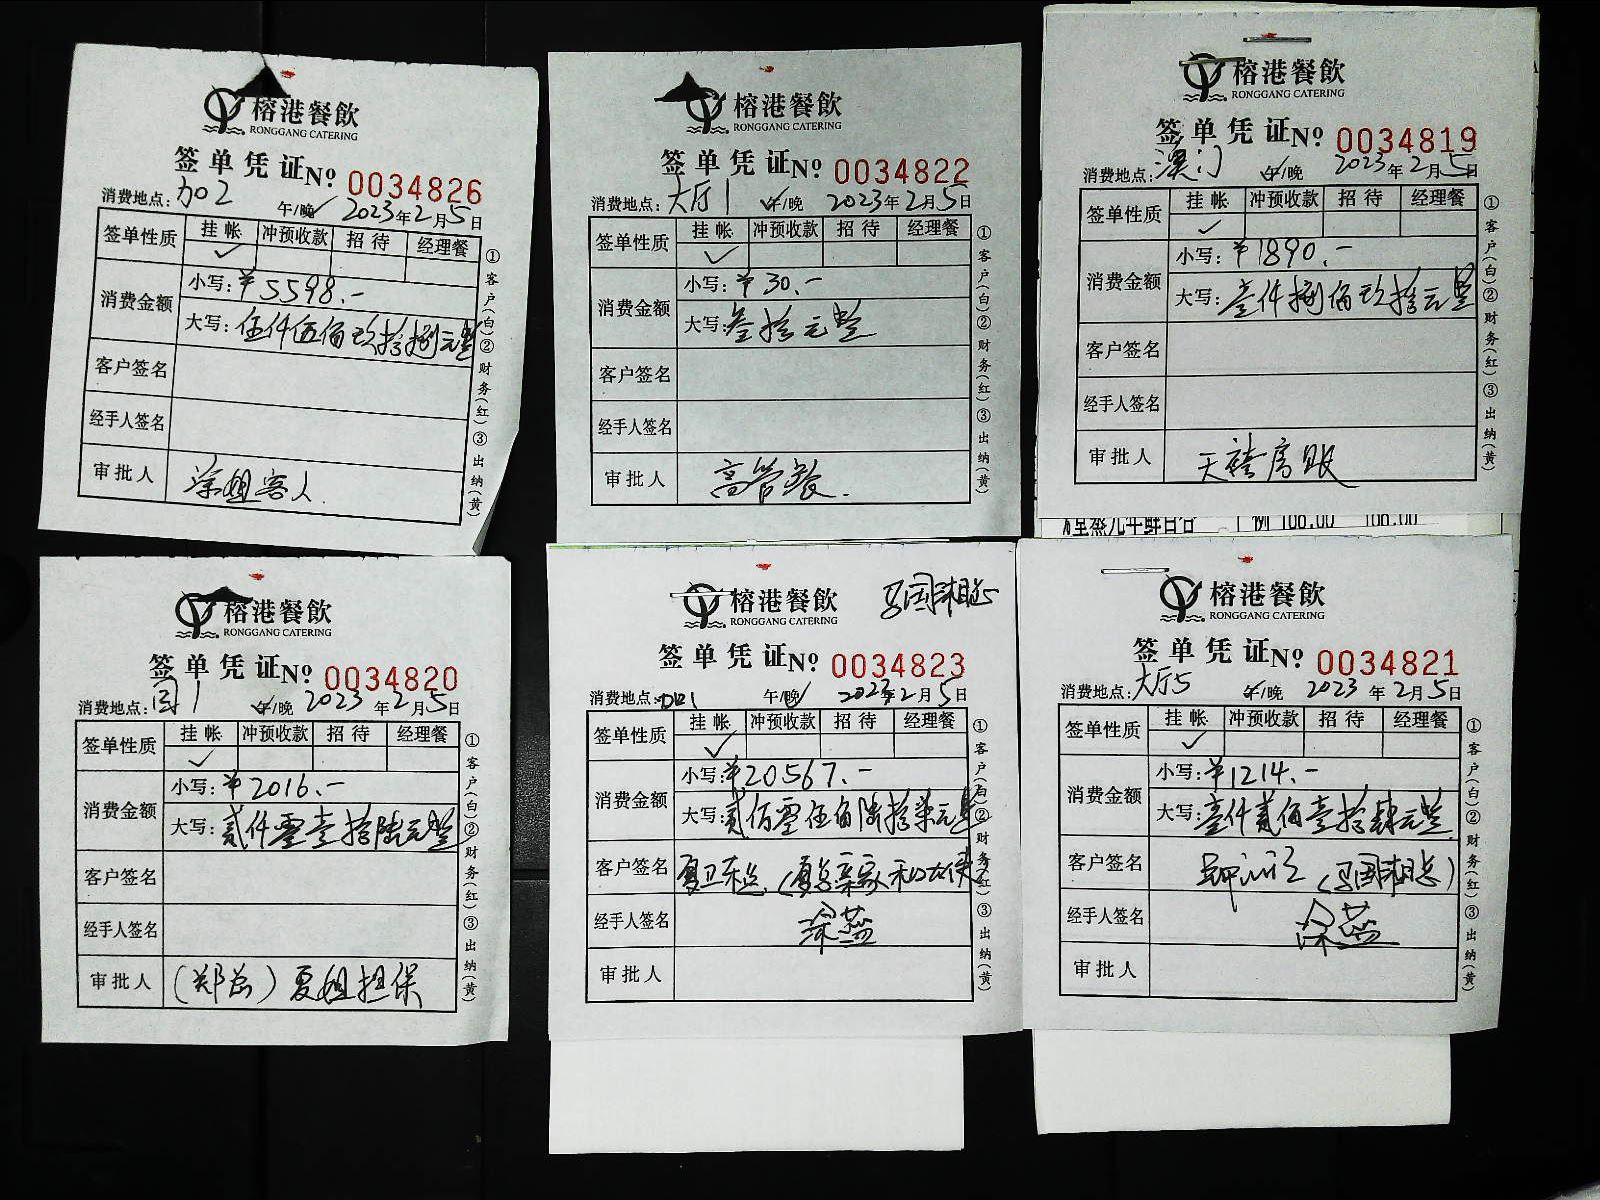 榕港餐飲
RONGGANG CATERING
签单凭证 Nº 0034826
消费地点: 加2 午/晚 2023年2月5日
签单性质 挂帐 冲预收款 招待 经理餐
消费金额 小写: ¥5598.-
大写: 伍仟伍佰玖拾捌元整
客户签名
经手人签名
审批人 涂姐客人.
①客户(白)②财务(红)③出纳(黄)
榕港餐飲
RONGGANG CATERING
签单凭证 Nº 0034822
消费地点: 大厅1 午/晚 2023年2月5日
签单性质 挂帐 冲预收款 招待 经理餐
消费金额 小写: ¥30.-
大写: 叁拾元整
客户签名
经手人签名
审批人 高管餐.
①客户(白)②财务(红)③出纳(黄)
榕港餐飲
RONGGANG CATERING
签单凭证 Nº 0034819
消费地点: 澳门 午/晚 2023年2月5日
签单性质 挂帐 冲预收款 招待 经理餐
消费金额 小写: ¥1890.-
大写: 壹仟捌佰玖拾元整
客户签名
经手人签名
审批人 天禧房账
①客户(白)②财务(红)③出纳(黄)
例 108.00 108.00
榕港餐飲
RONGGANG CATERING
签单凭证 Nº 0034820
消费地点: 闽1 午/晚 2023年2月5日
签单性质 挂帐 冲预收款 招待 经理餐
消费金额 小写: ¥2016.-
大写: 贰仟零壹拾陆元整
客户签名
经手人签名
审批人 (郑总) 夏姐担保
①客户(白)②财务(红)③出纳(黄)
榕港餐飲
RONGGANG CATERING
马国相总
签单凭证 Nº 0034823
消费地点: 午/晚 2023年2月5日
签单性质 挂帐 冲预收款 招待 经理餐
消费金额 小写: ¥20567.-
大写: 贰佰零伍佰陆拾柒元整
客户签名 夏卫 总 (夏总亲家
经手人签名 涂燕
审批人
①客户(白)②财务(红)③出纳(黄)
榕港餐飲
RONGGANG CATERING
签单凭证 Nº 0034821
消费地点: 大厅5 午/晚 2023年2月5日
签单性质 挂帐 冲预收款 招待 经理餐
消费金额 小写: ¥1214.-
大写: 壹仟贰佰壹拾肆元整
客户签名 (马国相总)
经手人签名 涂燕
审批人
①客户(白)②财务(红)③出纳(黄)